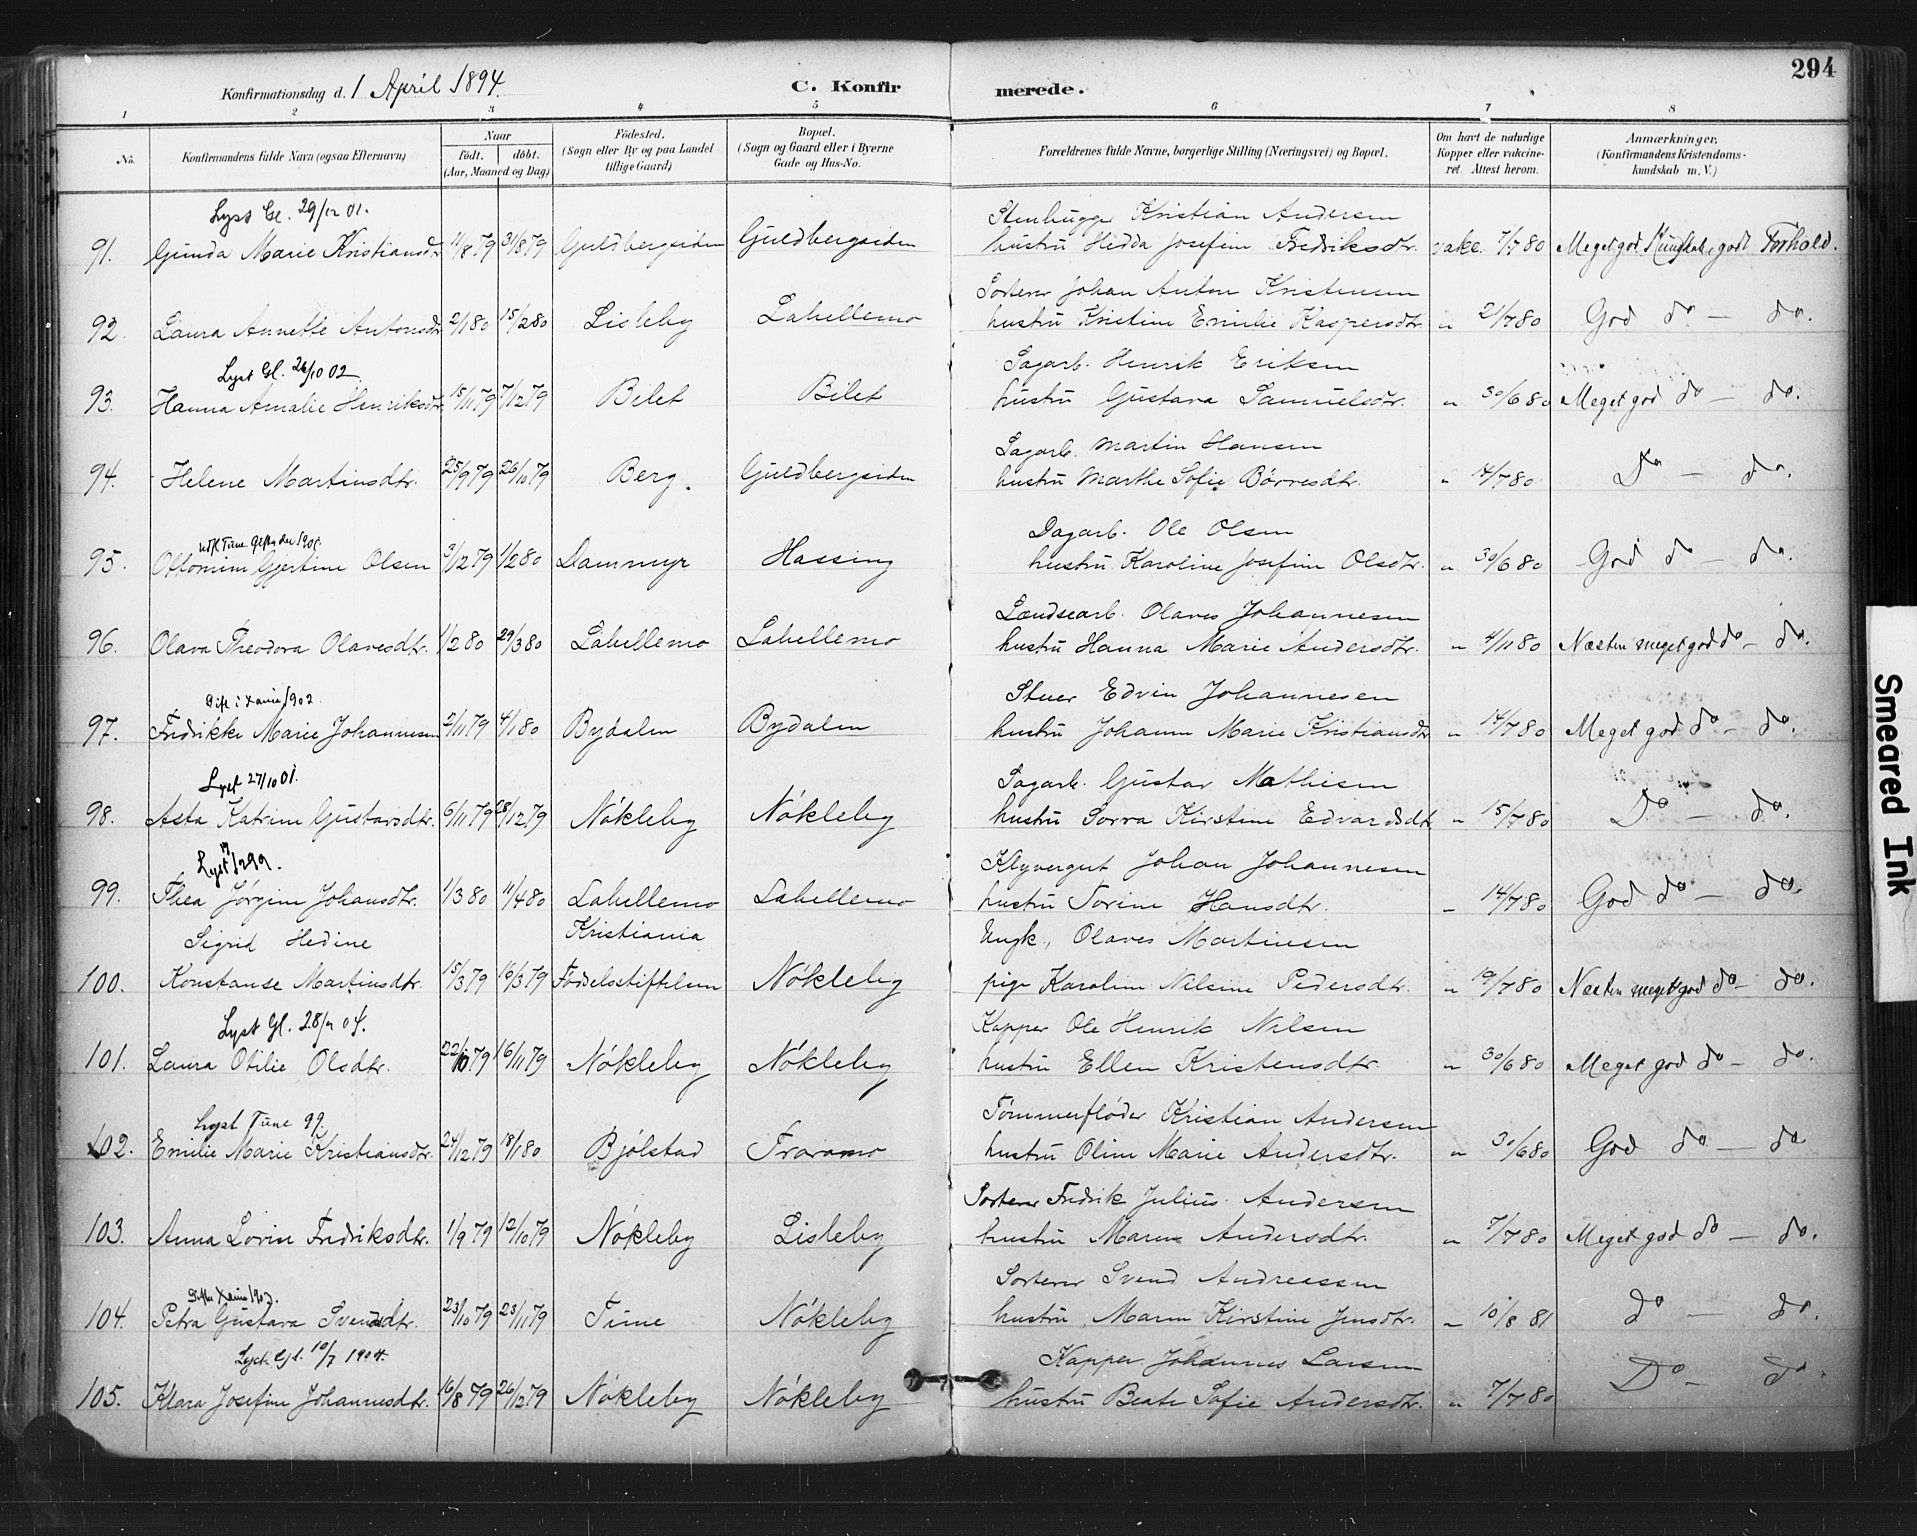 294
Konfirmationsdag d. 1 April 1894.
C. Konfirmerede.
1 2 3 4 5 6 7 8
No. Konfirmandens fulde Navn (ogsaa Efternavn) Naar født. døbt. (Aar, Maaned og Dag) Fødested. (Sogn eller By og paa Landet tillige Gaard) Bopæl. (Sogn og Gaard eller i Byerne Gade og Hus-No. Forældrenes fulde Navne, borgerlige Stilling (Næringsvei) og Bopæl. Om havt de naturlige Kopper eller vakcineret. Attest herom. Anmærkninger, (Konfirmandens Kristendomskundskab m. V.)
Lyst Gl. 29/12 01. Stenhugger Kristian Andersen
91. Gunda Marie Kristiansdtr. 11/8 79 31/8 79 Guldbergsiden Guldbergsiden hustru Hedda Josefine Fredriksdtr. vakc. 7/7 80 Meget god Kundskab, godt Forhold.
Sorterer Johan Anton Kristensen
92. Laura Annette Antonsdtr. 2/1 80 15/2 80 Lisleby Lahellemo hustru Kristine Emilie Kaspersdtr. " 21/7 80 God do — do.
Lyst Gl. 26/10 02 Sagarb. Henrik Eriksen
93. Hanna Amalie Henriksdtr. 15/11 79 7/12 79 Bilet Bilet hustru Gustava Samuelsdtr. " 30/6 80 Meget god do — do.
Sagarb. Martin Hansen
94. Helene Martinsdtr. 25/9 79 26/10 79 Berg. Guldbergsiden hustru Marthe Sofie Børresdtr. " 14/7 80 Do — do.
Dagarb. Ole Olsen
95. Ottomine Gjertine Olsen 3/12 79 1/2 80 Dammyr Hassing hustru Karoline Josefine Olsdtr. " 30/6 80 God do — do.
Lændsearb. Olaves Johannesen
96. Olava Theodora Olavesdtr. 1/2 80 29/3 80 Lahellemo Lahellemo hustru Hanna Marie Andersdtr. " 4/11 80 Næsten meget god do — do.
1902. Stuer Edvin Johannesen
97. Fredrikke Marie Johannesen 2/11 79 4/1 80 Bydalen Bydalen hustru Johanne Marie Kristiansdtr. " 14/7 80 Meget god do — do.
Lyst 27/10 01. Sagarb. Gustav Mathisen
98. Asta Katrine Gustavsdtr. 6/11 79 28/12 79 Nøkleby Nøkleby hustru Sorra Kirstine Edvardsdtr. " 15/7 80 Do — do.
Lyst Klyvergut Johan Johannesen
99. Thea Jørgine Johansdtr. 1/3 80 11/4 80 Lahellemo Lahellemo hustru Torine Hansdtr. " 14/7 80 God do — do.
Sigrid Hedine Kristiania Ungk., Olaves Martinsen
100. Konstanse Martinsdtr. 15/3 79 19/3 79 Fødselsstiftelsen Nøkleby pige Karoline Nilsine Pedersdtr. " 19/7 80 Næsten meget god do — do.
Lyst Gl. 28/2 04. Kapper Ole Henrik Nilsen
101. Laura Otilie Olsdtr. 22/10 79 16/11 79 Nøkleby Nøkleby hustru Ellen Kristensdtr. " 30/6 80 Meget god do — do.
Lyst Tune 99 Tømmerfløder Kristian Andersen
102. Emilie Marie Kristiansdtr. 24/12 79 18/1 80 Bjølstad Traramo hustru Oline Marie Andersdtr. " 30/6 80 God do — do
Sorterer Fredrik Julius Andersen
103. Anna Lovise Fredriksdtr. 1/9 79 12/10 79 Nøkleby Lisleby hustru Maren Andersdtr. " 7/7 80 Meget god do — do.
Sorterer Svend Andreassen
104. Petra Gustava Svendsdtr. 23/10 79 23/11 79 Tune Nøkleby hustru Maren Kirstine Jensdtr. " 10/8 81 do — do.
Lyst Gl. 10/7 1904. Kapper Johannes Larsen
105. Klara Josefine Johannesdtr. 16/8 79 26/12 79 Nøkleby Nøkleby hustru Beate Sofie Andersdtr. " 7/7 80 Do — do.
Smeared Ink